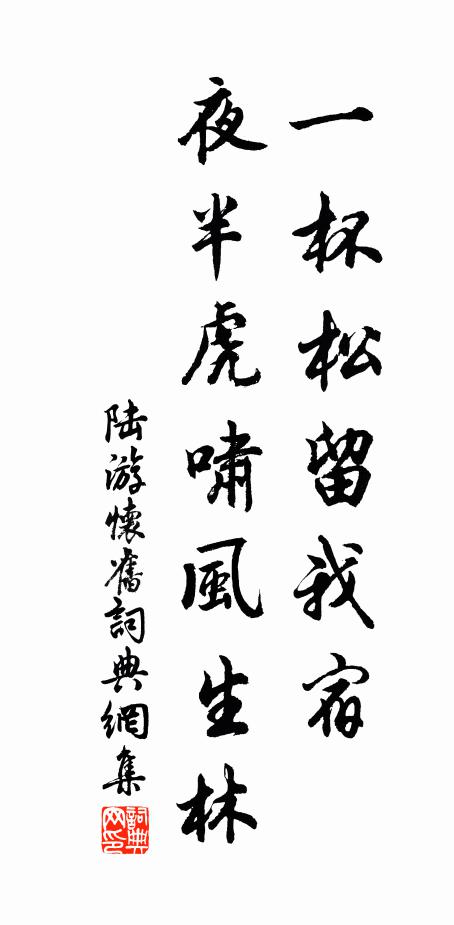 一杯松留我宿
夜半虎嘯風生林
陸游懷舊詞典網集
詞典网印